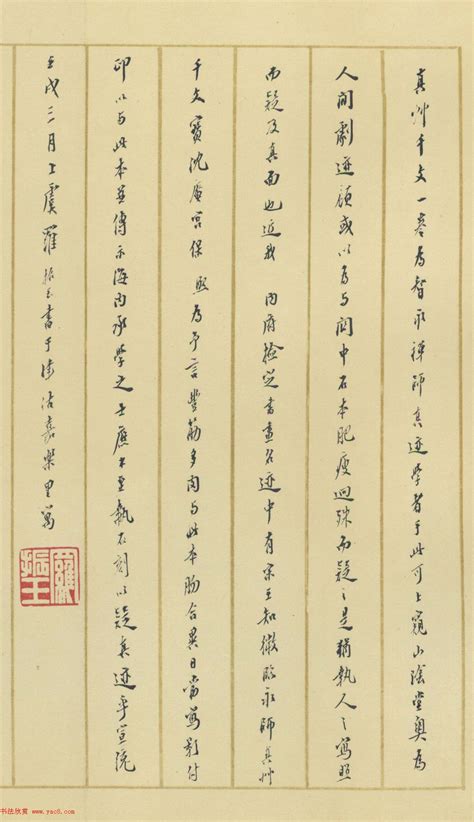 真艸千文一卷為智永禪師真迹學者于此可上窺山陰堂奧為
人間劇迹顧或以為与関中石本肥瘦迥殊而疑之是猶執人之寫照
而疑及真面也近我 內府撿定書畫名迹中有宋王知微臨永師真艸
千文寶沈盦宮保 熙為予言豐筋多肉与此本吻合異日當寫影付
印以与此本並傳示海內承學之士應不至執石刻以疑真迹乎宣統
壬戌三月上虞羅振玉書于津沽嘉樂里寓
羅振玉
书法欣赏 www.yac8.com